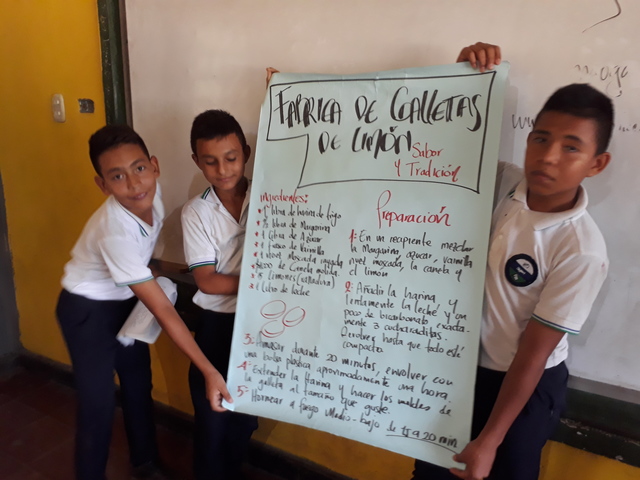 FABRICA DE GALLETAS
DE LIMÓN
Sabor
Y Tradición
Ingredientes:
libra de harina de trigo
libra de Margarina
1 Libra de Azúcar
1 frasco de Vainilla
1 nuez Moscada
de Canela molida
Limones (ralladura)
1 Litro de leche
Preparación
1- En un recipiente mezclar
la Margarina, azucar, vainilla
nuez moscada, la canela y
el limon
2- Añadir la harina, y
lentamente la leche y un
poco de bicarbonato, exacta-
mente 3 cucharaditas.
Revolver hasta que todo esté
compacto
3- Amasar durante 20 minutos, envolver con
una bolsa plastica aproximadamente una hora.
4- Extender la Harina y hacer los moldes de
la galleta al tamaño que guste.
5- Hornear a fuego Medio-bajo de 15 a 20 min